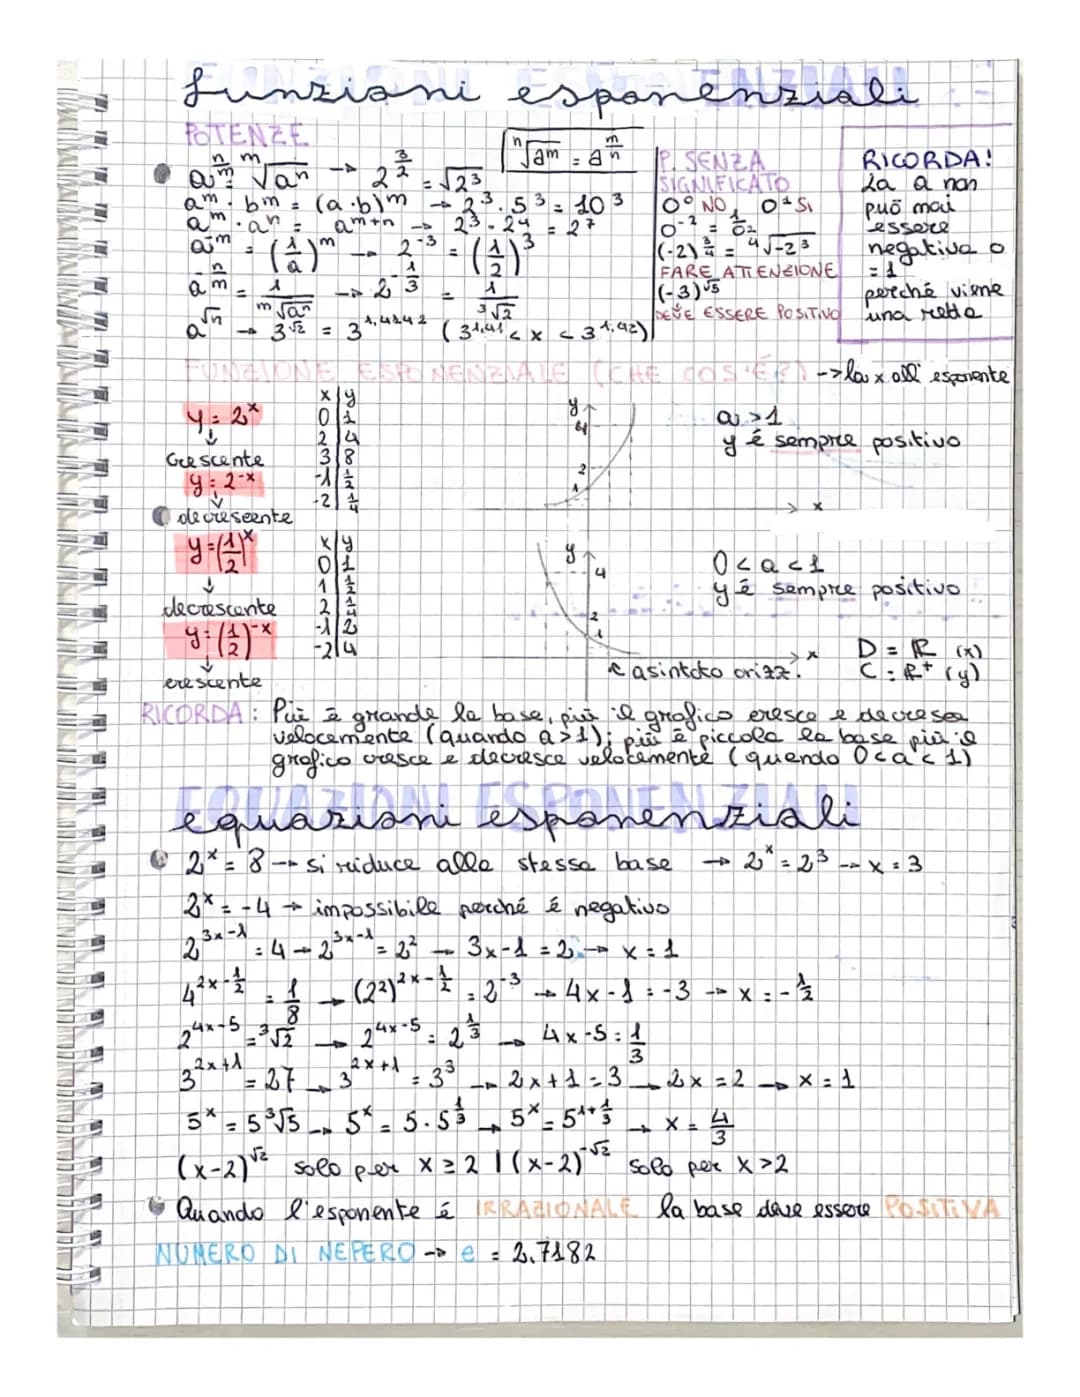 funzioni esponenziali
POTENZE
ⁿ√aᵐ = a^(m/n)
a^(n/m) = ᵐ√aⁿ → 2^(3/2) = √2³
aᵐ · bᵐ = (a·b)ᵐ → 2³ · 5³ = 10³
aᵐ · aⁿ = aᵐ⁺ⁿ → 2³ · 2⁴ = 2⁷
a⁻ᵐ = (1/a)ᵐ → 2⁻³ = (1/2)³
a^(-n/m) = 1/ᵐ√aⁿ → 2^(-1/3) = 1/³√2
a^√n → 3^√2 = 3^1,4142 (3^1,41 < x < 3^1,42)
P. SENZA
SIGNIFICATO
0⁰ NO, 0¹ SI
0⁻² = 1/0²
(-2)^(3/4) = ⁴√-2³
FARE ATTENZIONE
(-3)^√5
DEVE ESSERE POSITIVO
RICORDA!
La a non
può mai
essere
negativa o
= 1
perché viene
una retta
FUNZIONE ESPONENZIALE (CHE COS'È?) -> la x all'esponente
y = 2ˣ
↓
Crescente
y = 2⁻ˣ
↓
decrescente
x | y
0 | 1
2 | 4
3 | 8
-1 | 1/2
-2 | 1/4
y
4
2
1
x
a > 1
y é sempre positivo
y = (1/2)ˣ
↓
decrescente
y = (1/2)⁻ˣ
↓
crescente
x | y
0 | 1
1 | 1/2
2 | 1/4
-1 | 2
-2 | 4
y
4
2
1
x
asintoto orizz.
0 < a < 1
y é sempre positivo
D = R (x)
C = R⁺ (y)
RICORDA: Più è grande la base, più il grafico cresce e decresce
velocemente (quando a > 1); più è piccola la base più il
grafico cresce e decresce velocemente (quando 0 < a < 1)
equazioni esponenziali
2ˣ = 8 → si riduce alla stessa base → 2ˣ = 2³ → x = 3
2ˣ = -4 → impossibile perché é negativo
2^(3x-1) = 4 → 2^(3x-1) = 2² → 3x-1 = 2 → x = 1
4^(2x-1/2) = 1/8 → (2²)^(2x-1/2) = 2⁻³ → 4x-1 = -3 → x = -1/2
2^(4x-5) = ³√2 → 2^(4x-5) = 2^(1/3) → 4x-5 = 1/3
3^(2x+1) = 27 → 3^(2x+1) = 3³ → 2x+1 = 3 → 2x = 2 → x = 1
5ˣ = 5³√5 → 5ˣ = 5·5^(1/3) → 5ˣ = 5^(1+1/3) → x = 4/3
(x-2)^√2 solo per x ≥ 2 | (x-2)^-√2 solo per x > 2
Quando l'esponente é IRRAZIONALE la base deve essere POSITIVA
NUMERO DI NEPERO → e = 2,7182